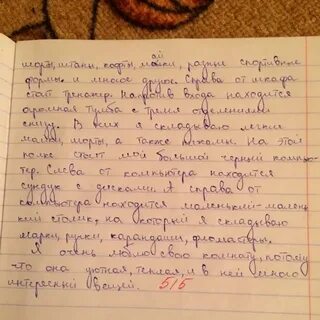 ай
шорты, штаны, кофты, майки, разные спортивные
формы. и многое другое. Справа от шкафа
стоит тренажер. Напротив входа находится
огромная тумба с тремя отделениями
снизу. В них я складываю легкие
майки, шорты, а также пижамы. На этой
полке стоит мой большой черный компью-
тер. Слева от компьютера находится
сундук с дисками. А справа от
компьютера находится маленький-малень-
кий столик, на который я складываю
марки, ручки, карандаши, фломастеры.
Я очень люблю свою комнату, потому
что она уютная, теплая, и в ней много
интересных вещей. 5/5